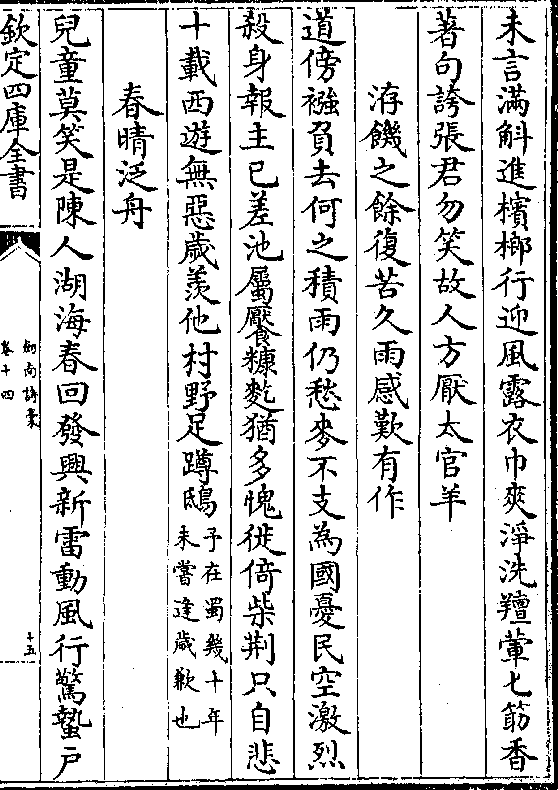 未言滿斛進檳榔行迎風露衣巾爽淨洗羶葷匕筯香
著句誇張君勿笑故人方厭太官羊
洊饑之餘復苦久雨感歎有作
道傍襁負去何之積雨仍愁麥不支為國憂民空激烈
殺身報主已差池屬饜糠麧猶多愧徙倚柴荆只自悲
十載西遊無惡歳羡他村野足蹲鴟予在蜀幾十年
未嘗逢歳歉也
春晴泛舟
兒童莫笑是陳人湖海春回發興新雷動風行驚蟄户
欽定四庫全書
劍南詩藁
卷十四
十五